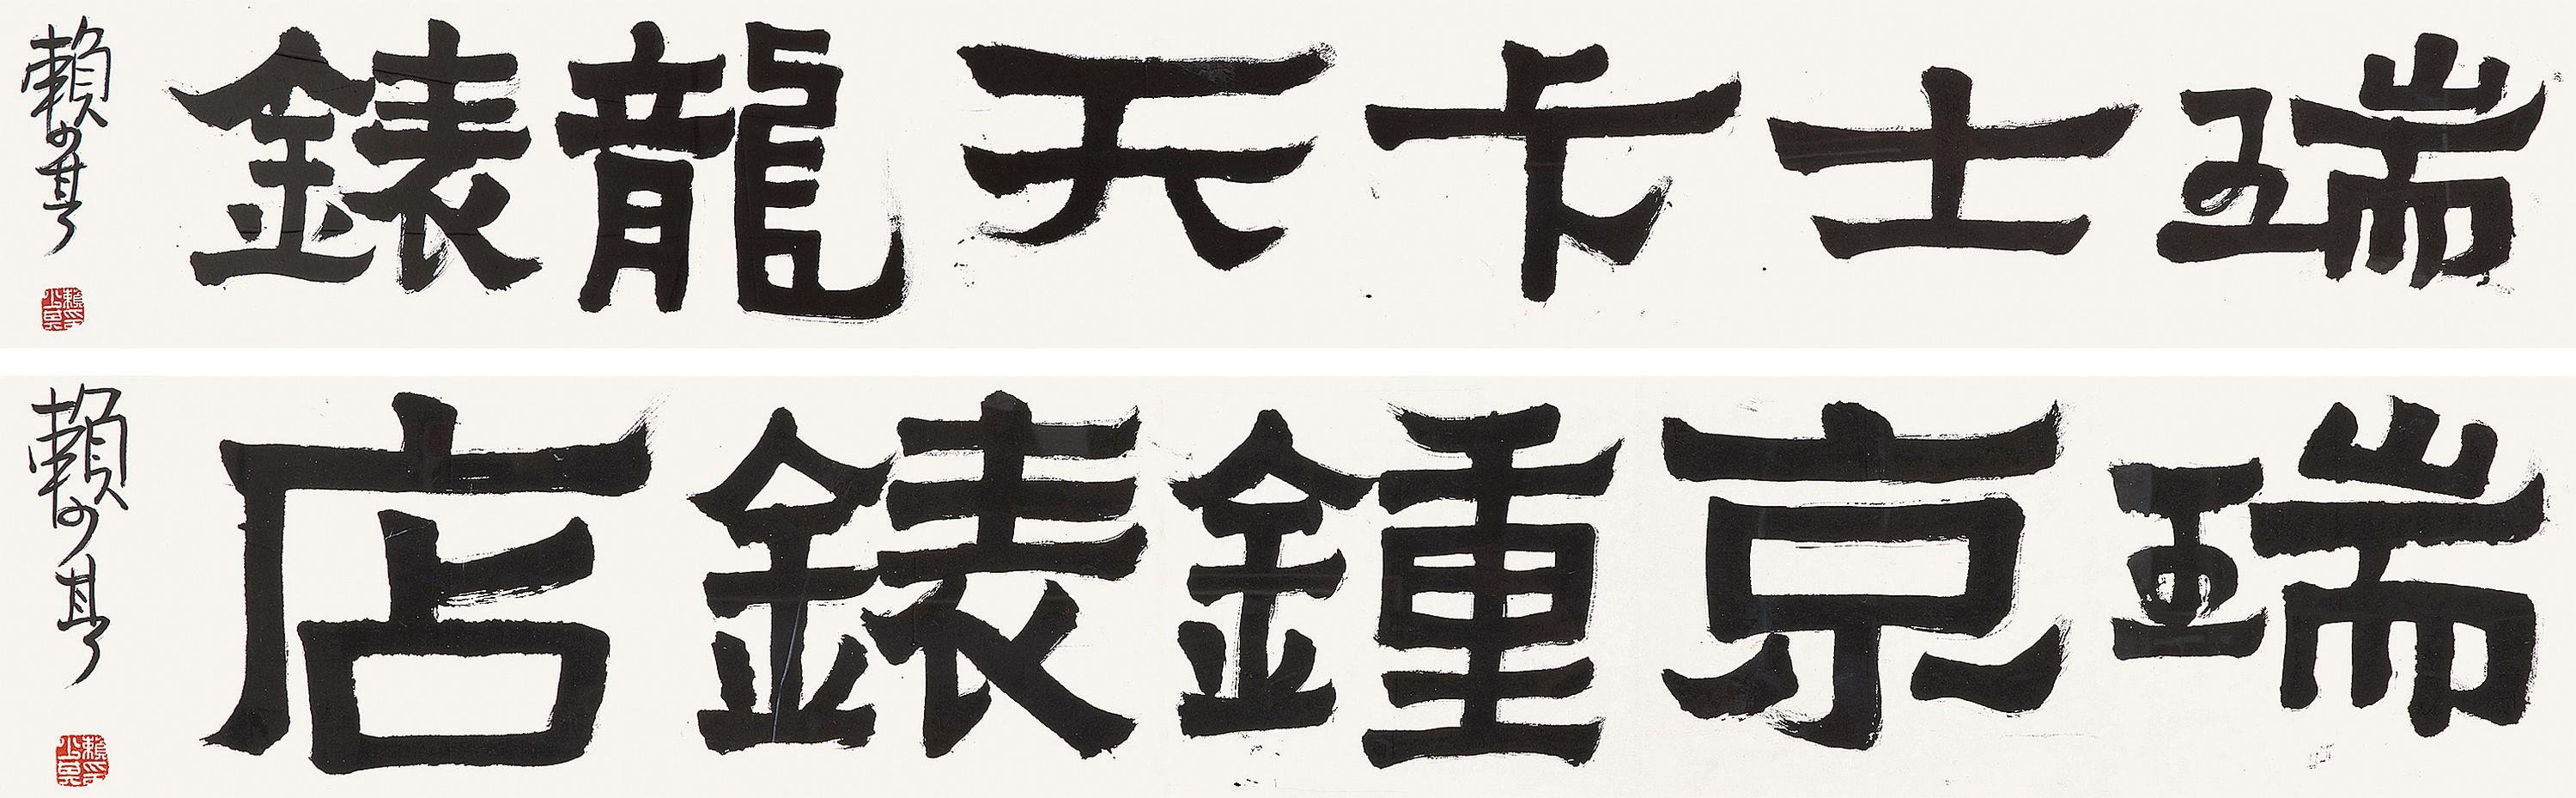 瑞士卡天龍錶
賴少其
瑞京鍾錶店
賴少其